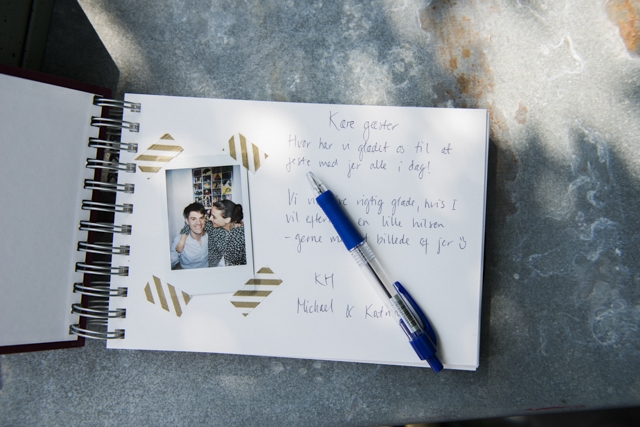 Kære gæster
Hvor har vi glædet os til at
feste med jer alle i dag!
Vi rigtig glade, hvis I
vil en lille hilsen
- gerne billede af jer ☺
KH
Michael &